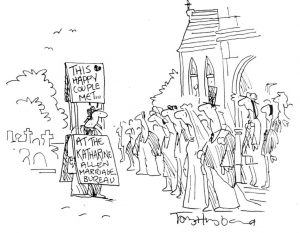 THIS
HAPPY
COUPLE
MET...
AT THE
KATHARINE
ALLEN
MARRIAGE
BUREAU
Tony Husband